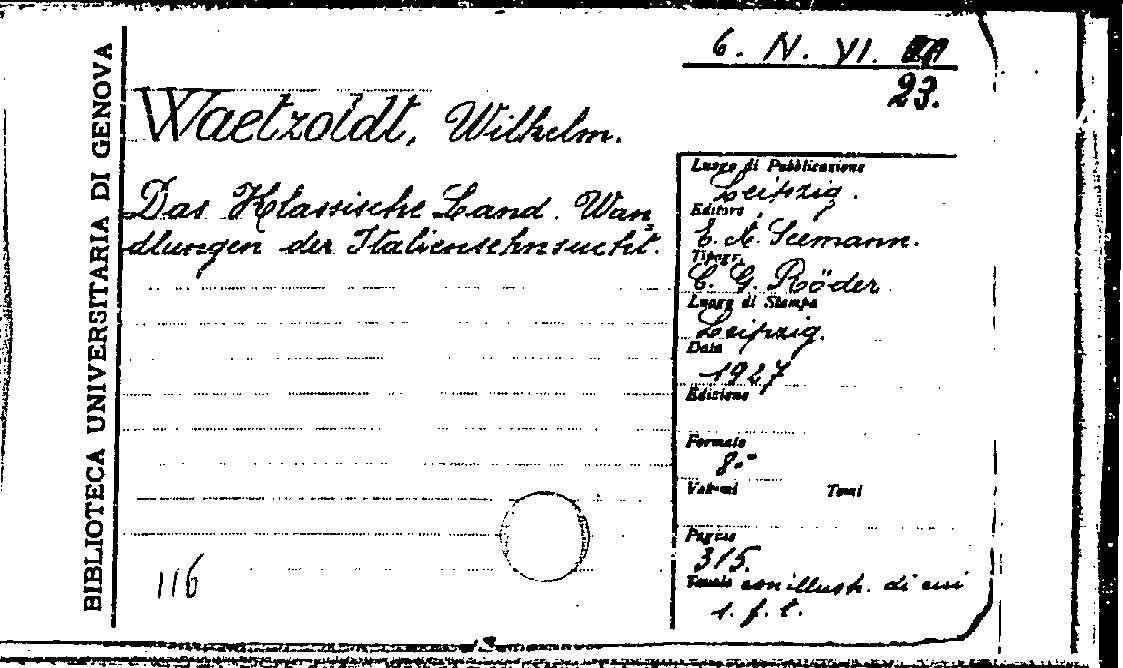 BIBLIOTECA UNIVERSITARIA DI GENOVA
6. N. VI.
23.
Waetzoldt, Wilhelm.
Das Klassische Land. Wan
dlungen der Italiensehnsucht.
Luogo di Pubblicazione
Leipzig.
Editore
E. A. Seemann.
Tipogr.
C. G. Röder
Luogo di Stampa
Leipzig.
Data
1927
Edizione
Formato
8.°
Volumi Tomi
Pagine
315.
Tavole con illustr. di cui
1. f. t.
116